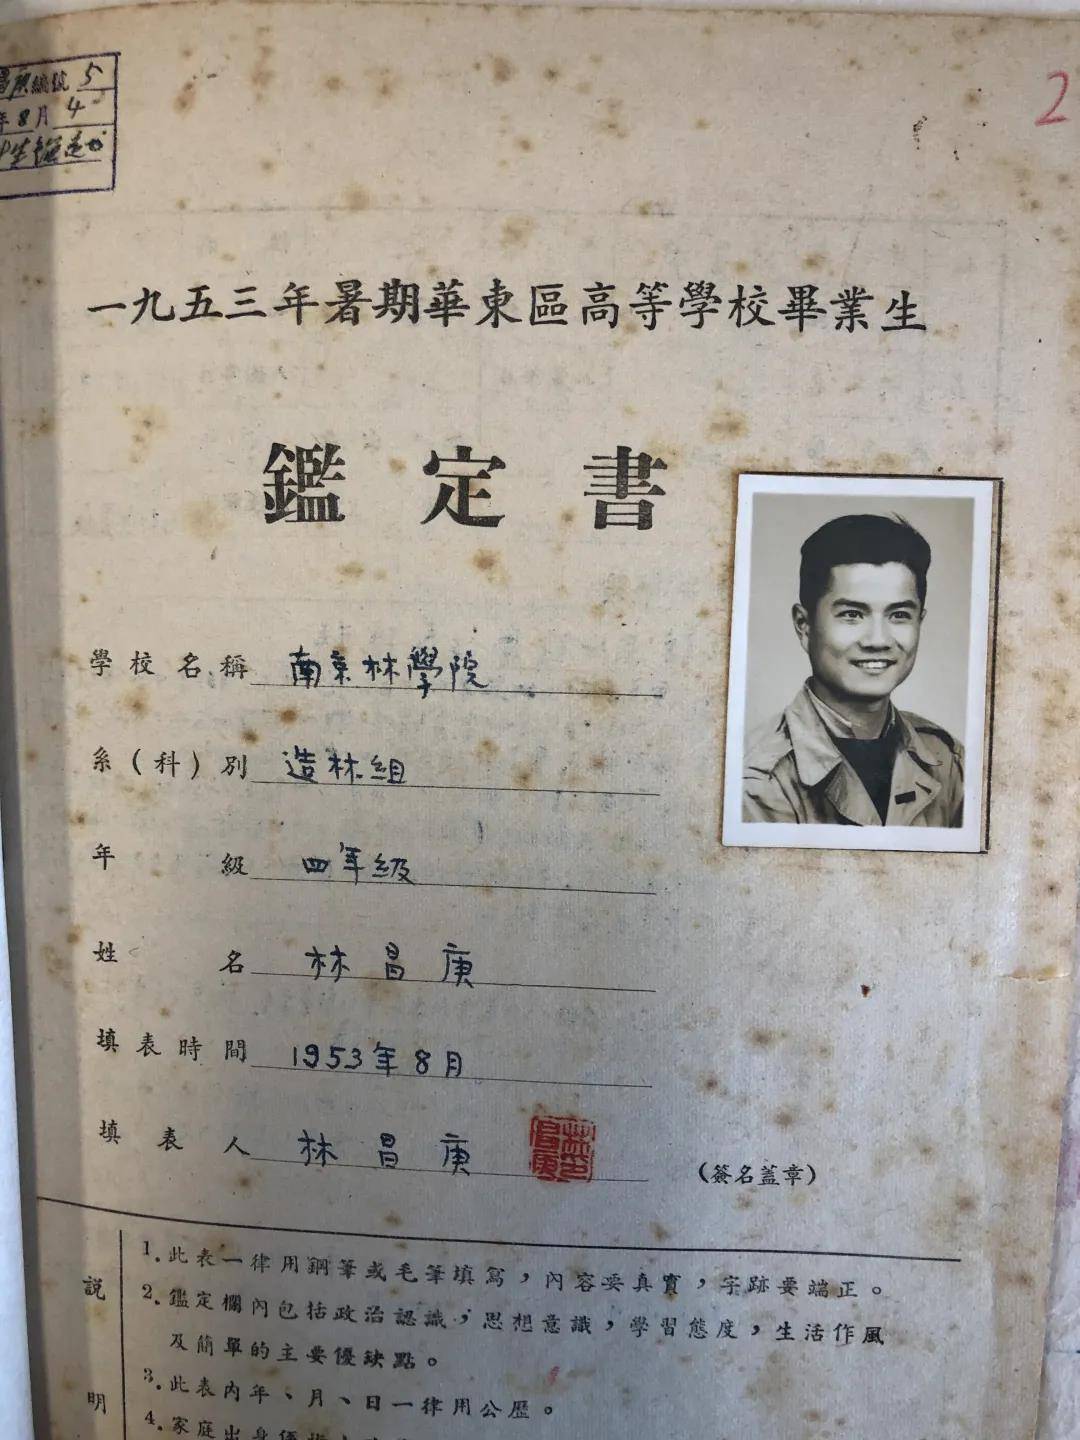 編號 5
年8月 4
2
一九五三年暑期華東區高等學校畢業生
鑑定書
學校名稱 南京林學院
系(科)別 造林組
年級 四年級
姓名 林昌庚
填表時間 1953年8月
填表人 林昌庚
(簽名蓋章)
說明
1.此表一律用鋼筆或毛筆填寫，內容要真實，字跡要端正。
2.鑑定欄內包括政治認識，思想意識，學習態度，生活作風
及簡單的主要優缺點。
3.此表內年、月、日一律用公歷。
4.家庭出身